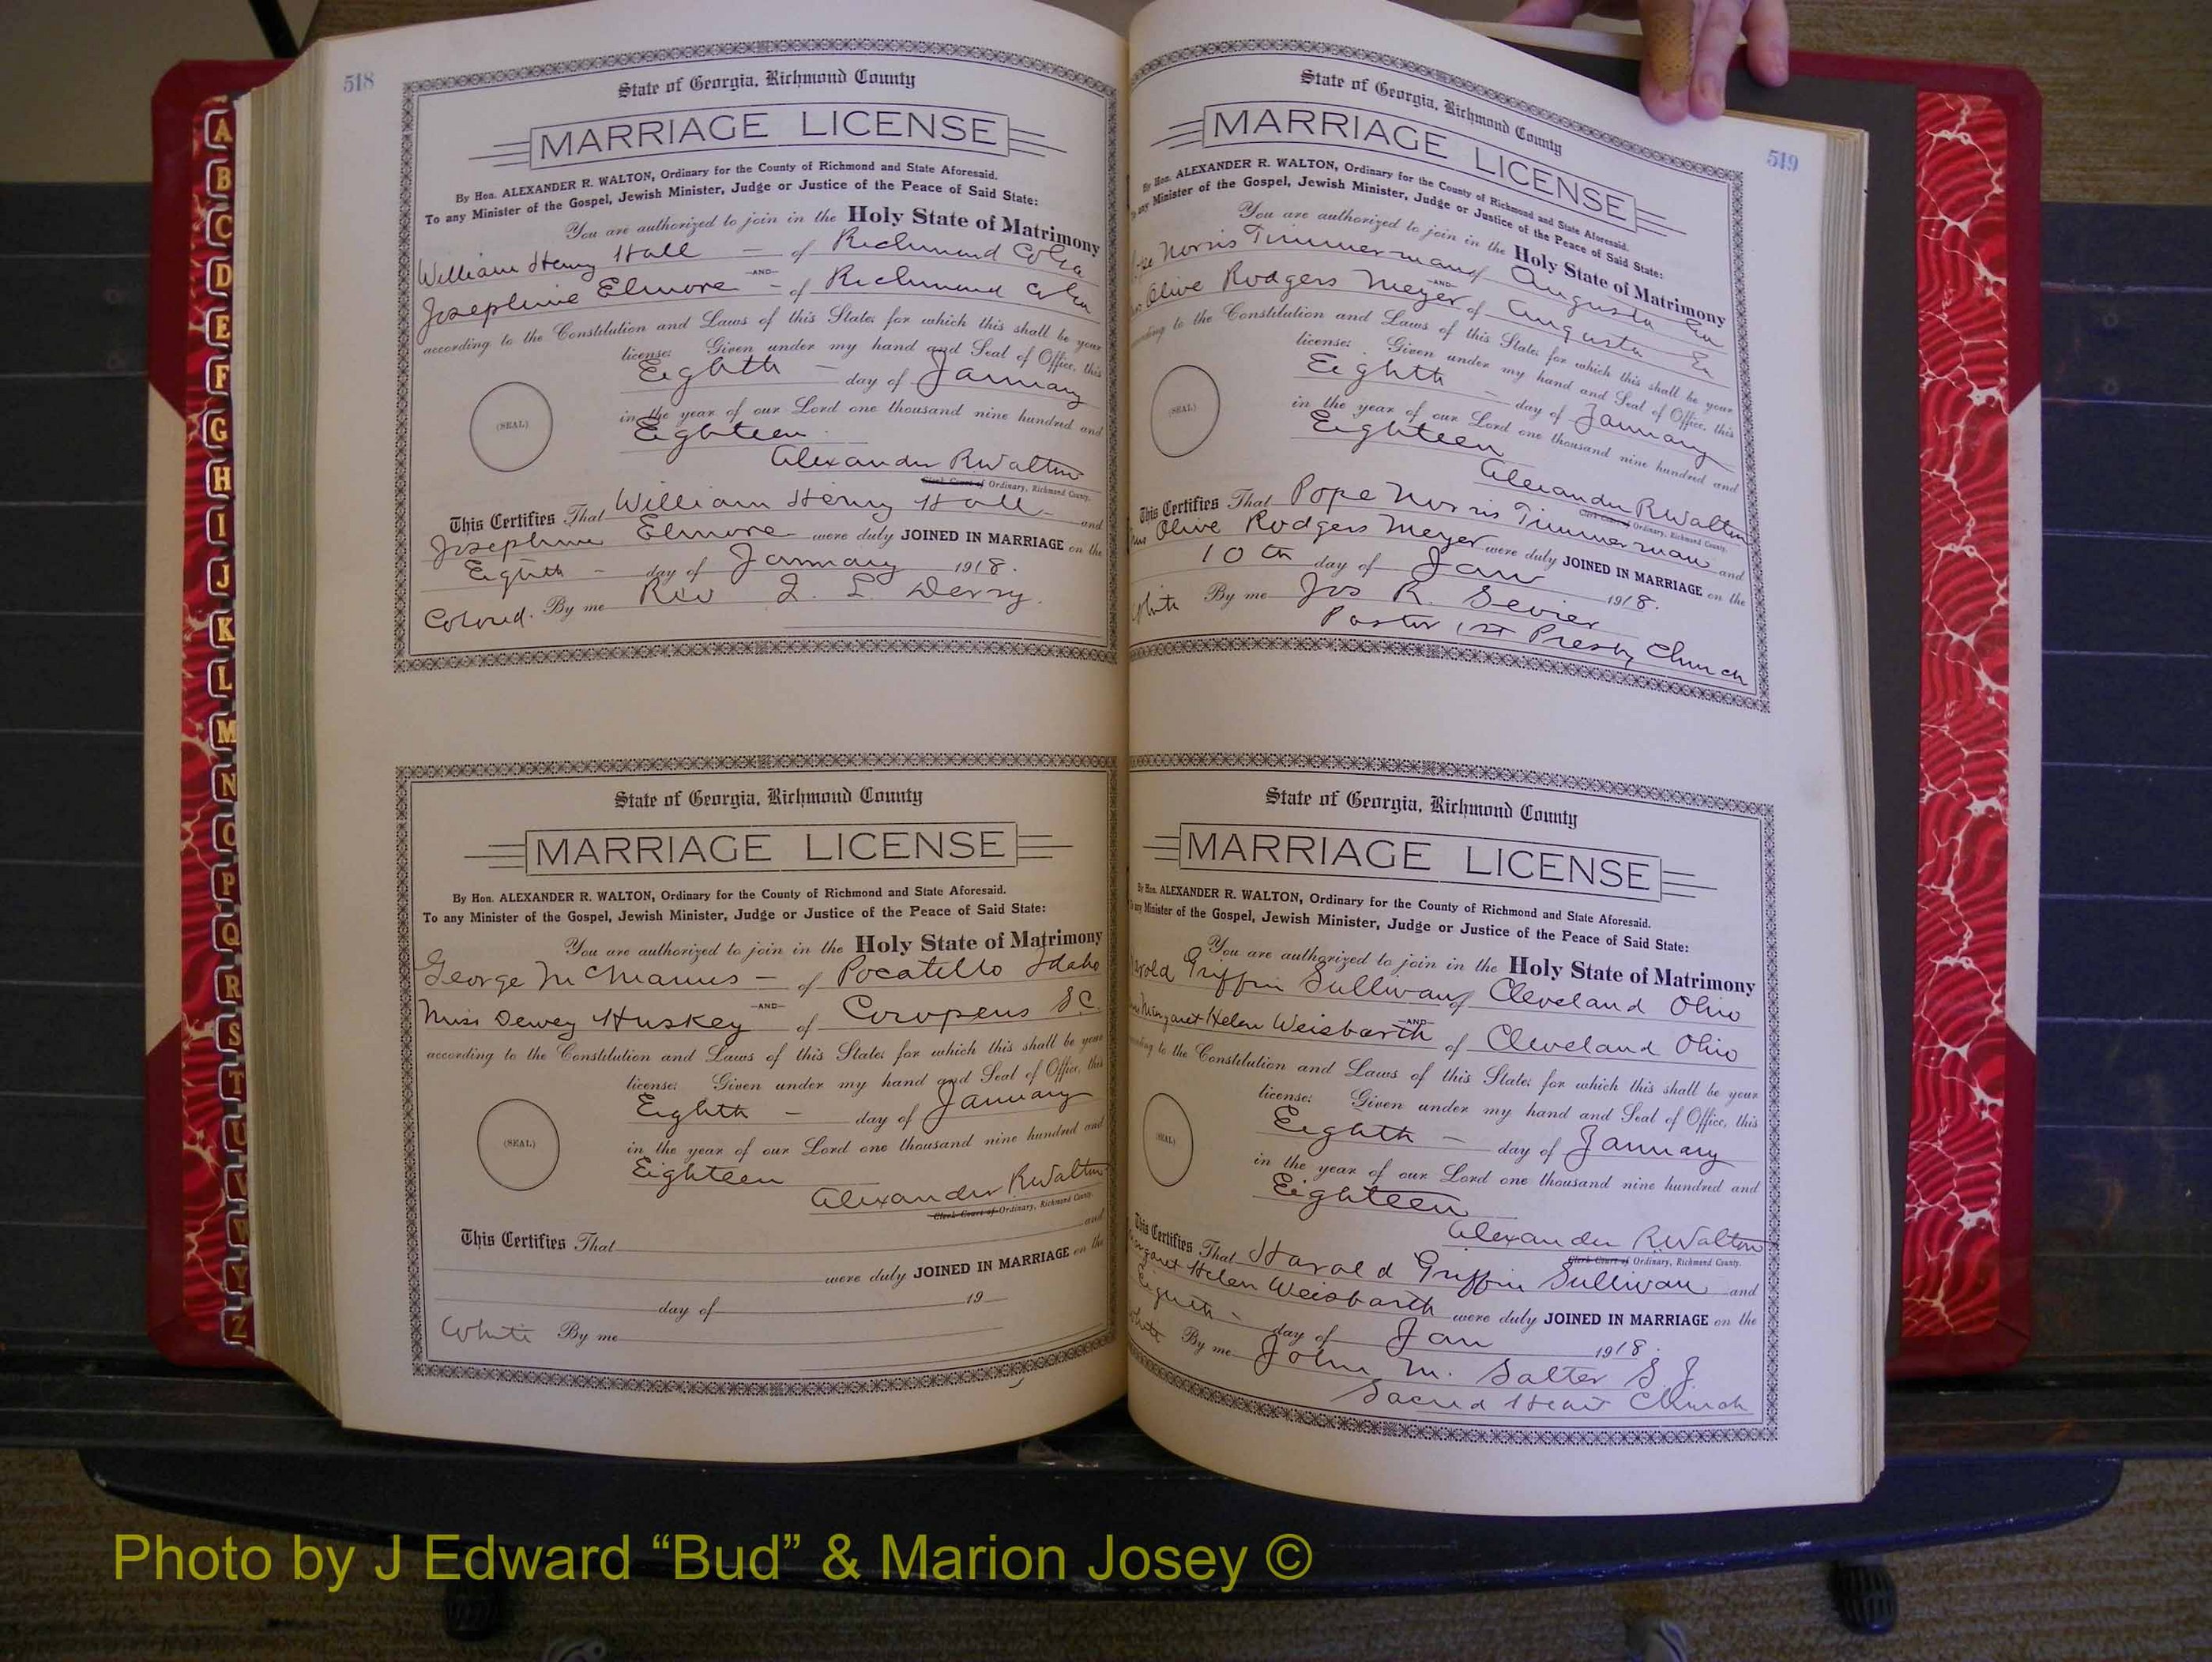 518
State of Georgia, Richmond County
MARRIAGE LICENSE
By Hon. ALEXANDER R. WALTON, Ordinary for the County of Richmond and State Aforesaid.
To any Minister of the Gospel, Jewish Minister, Judge or Justice of the Peace of Said State:
You are authorized to join in the Holy State of Matrimony
William Henry Hall — of Richmond Co Ga
—AND—
Josephine Elmore — of Richmond Co Ga
according to the Constitution and Laws of this State; for which this shall be your
license; Given under my hand and Seal of Office, this
Eighth — day of January
in the year of our Lord one thousand nine hundred and
(SEAL)
Eighteen
Alexander R Walton
Clerk Court of Ordinary, Richmond County.
This Certifies That William Henry Hall and
Josephine Elmore were duly JOINED IN MARRIAGE on the
Eighth — day of January 1918.
Colored. By me Rev
State of Georgia, Richmond County
MARRIAGE LICENSE
By Hon. ALEXANDER R. WALTON, Ordinary for the County of Richmond and State Aforesaid.
To any Minister of the Gospel, Jewish Minister, Judge or Justice of the Peace of Said State:
You are authorized to join in the Holy State of Matrimony
George McManus — of Pocatello Idaho
—AND—
Miss Dewey Huskey of Cowpens S.C.
according to the Constitution and Laws of this State; for which this shall be your
license; Given under my hand and Seal of Office, this
Eighth — day of January
(SEAL)
in the year of our Lord one thousand nine hundred and
Eighteen
Alexander R Walton
Clerk Court of Ordinary, Richmond County.
This Certifies That and
were duly JOINED IN MARRIAGE on the
day of 19
White By me
519
State of Georgia, Richmond County
MARRIAGE LICENSE
By Hon. ALEXANDER R. WALTON, Ordinary for the County of Richmond and State Aforesaid.
To any Minister of the Gospel, Jewish Minister, Judge or Justice of the Peace of Said State:
You are authorized to join in the Holy State of Matrimony
Norris Timmerman of Augusta Ga
—AND—
Olive Rodgers Meyer of Augusta Ga
to the Constitution and Laws of this State; for which this shall be your
license; Given under my hand and Seal of Office, this
Eighth — day of January
(SEAL)
in the year of our Lord one thousand nine hundred and
Eighteen
Alexander R Walton
Clerk Court of Ordinary, Richmond County.
This Certifies That Pope Norris Timmerman and
Olive Rodgers Meyer were duly JOINED IN MARRIAGE on the
10th day of Jan 1918.
White By me Jos R. Sevier
Pastor 1st Presby Church
State of Georgia, Richmond County
MARRIAGE LICENSE
By Hon. ALEXANDER R. WALTON, Ordinary for the County of Richmond and State Aforesaid.
any Minister of the Gospel, Jewish Minister, Judge or Justice of the Peace of Said State:
You are authorized to join in the Holy State of Matrimony
Griffin Sullivan of Cleveland Ohio
—AND—
Margaret Helen Weisbarth of Cleveland Ohio
to the Constitution and Laws of this State; for which this shall be your
license; Given under my hand and Seal of Office, this
Eighth — day of January
(SEAL)
in the year of our Lord one thousand nine hundred and
Eighteen
Alexander R Walton
Clerk Court of Ordinary, Richmond County.
This Certifies That Harold Griffin Sullivan and
Helen Weisbarth were duly JOINED IN MARRIAGE on the
Eighth — day of Jan 1918.
White By me John M. Salter S J
Sacred Heart Church
A
B
C
D
E
F
G
H
I
J
K
L
M
N
O
P
Q
R
S
T
U
V
W
Y
Z
Photo by J Edward “Bud” & Marion Josey ©